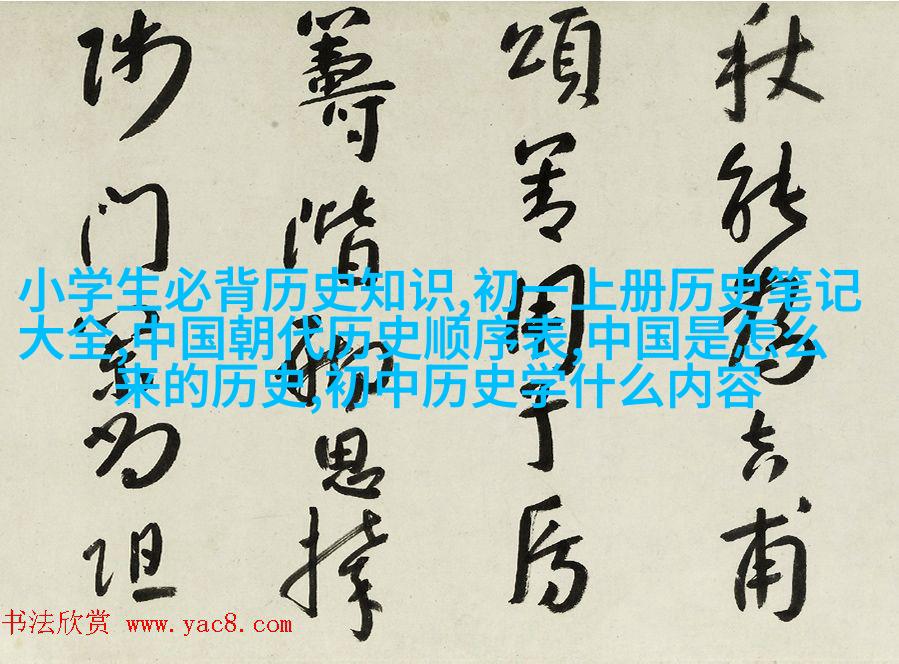 秋能為吉甫
頌善周子房
籌階思
門阻
小学生必背历史知识,初一上册历史笔记
大全,中国朝代历史顺序表,中国是怎么
来的历史,初中历史学什么内容
书法欣赏 www.yac8.com